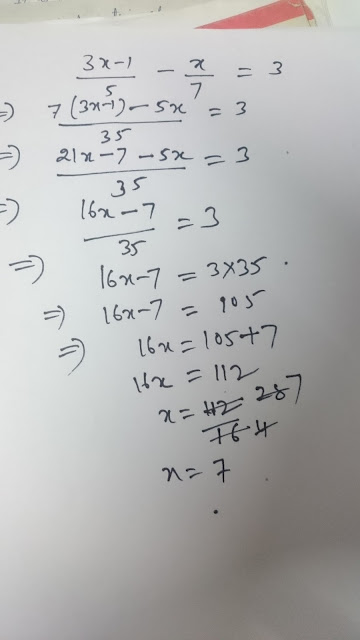 (3x-1)/5 - x/7 = 3
=> (7(3x-1)-5x)/35 = 3
=> (21x-7-5x)/35 = 3
=> (16x-7)/35 = 3
=> 16x-7 = 3×35.
=> 16x-7 = 105
=> 16x = 105+7
16x = 112
x = 112/16 28/4 7
x = 7